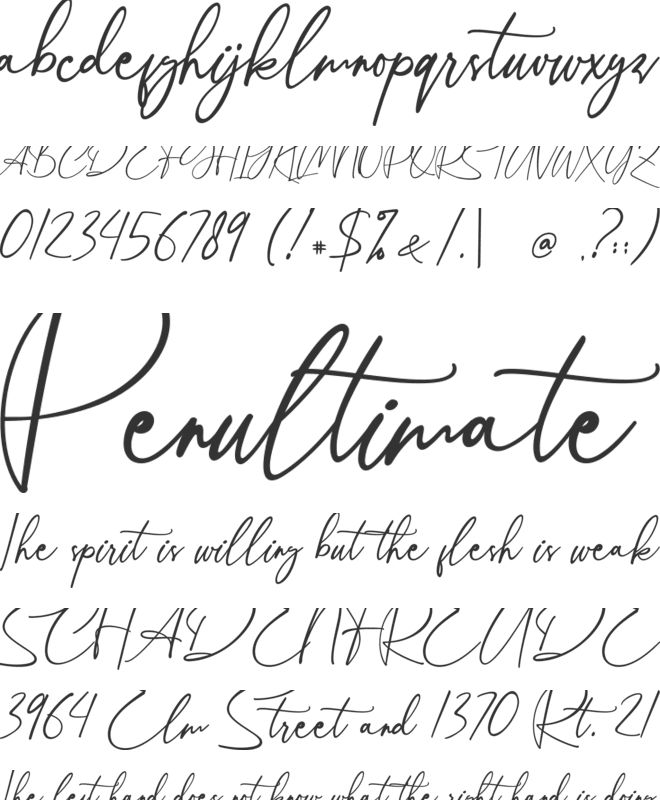 abcdefghijklmnopqrstuvwxyz
ABCDEFGHIJKLMNOPQRSTUVWXYZ
0123456789 (! #$%&/.| @ .?::)
Penultimate
The spirit is willing but the flesh is weak
SCHADENFREUDE
3964 Elm Street and 1370 Rt. 21
The left hand does not know what the right hand is doing